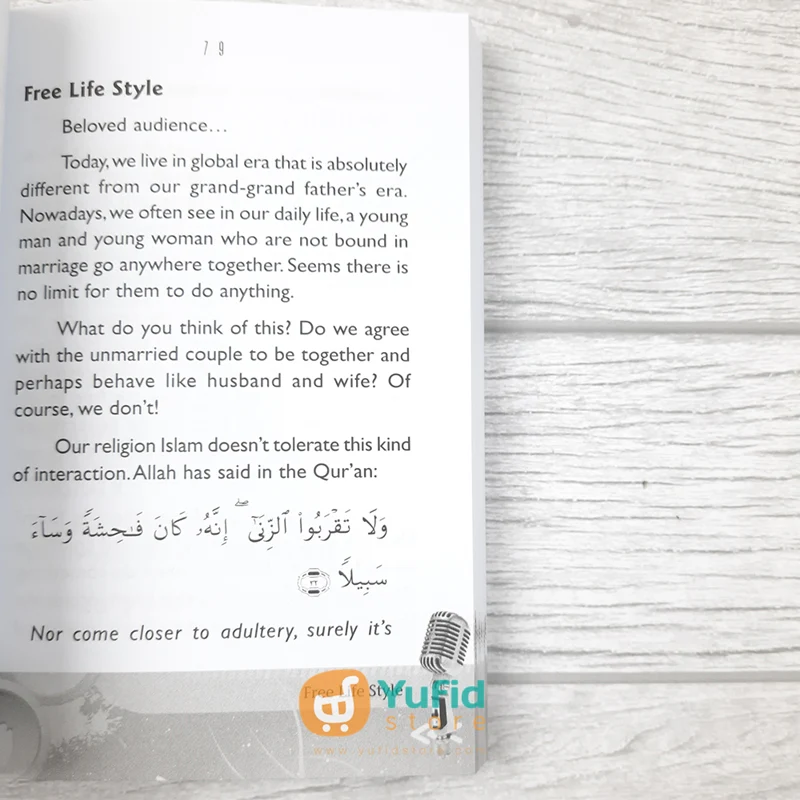 7 9
Free Life Style
Beloved audience...
Today, we live in global era that is absolutely
different from our grand-grand father's era.
Nowadays, we often see in our daily life, a young
man and young woman who are not bound in
marriage go anywhere together. Seems there is
no limit for them to do anything.
What do you think of this? Do we agree
with the unmarried couple to be together and
perhaps behave like husband and wife? Of
course, we don't!
Our religion Islam doesn't tolerate this kind
of interaction. Allah has said in the Qur'an:
وَلَا تَقْرَبُوا۟ ٱلزِّنَىٰٓ ۖ إِنَّهُۥ كَانَ فَـٰحِشَةً وَسَآءَ
سَبِيلًا ٣٢
Nor come closer to adultery, surely it's
Free Life Style
Yufid
store
www.yufidstore.com